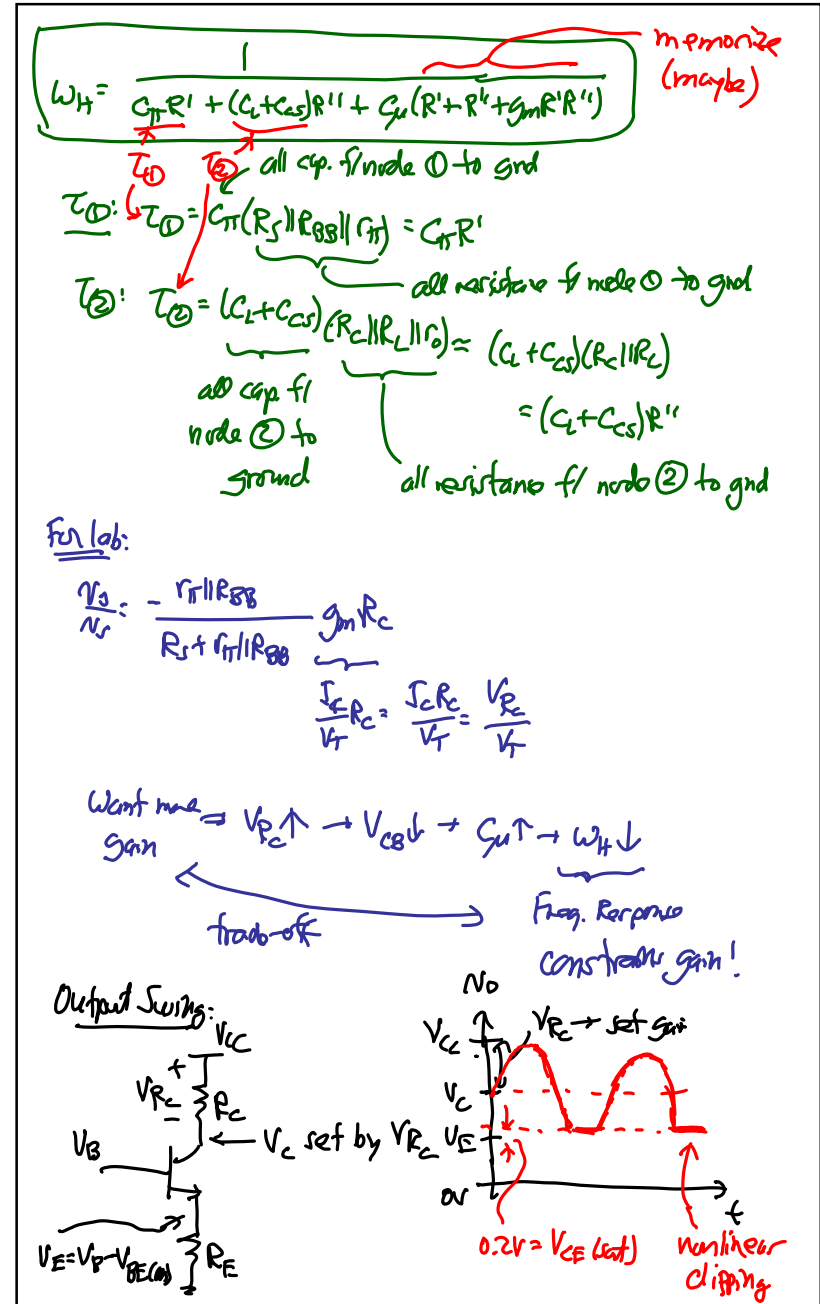 memorize
(maybe)
ω_H = 1 / (C_π R' + (C_L + C_CS) R'' + C_μ (R' + R'' + g_m R' R''))
τ_① τ_② all cap. f/ node ① to gnd
τ_①: τ_① = C_π (R_S || R_BB || r_π) = C_π R'
all resistance f/ node ① to gnd
τ_②: τ_② = (C_L + C_CS) (R_C || R_L || r_o) ≈ (C_L + C_CS) (R_C || R_L)
= (C_L + C_CS) R''
all cap f/
node ② to
ground
all resistance f/ node ② to gnd
For lab:
v_o / v_s = - (r_π || R_BB) / (R_S + r_π || R_BB) g_m R_C
I_C / V_T R_C = I_C R_C / V_T = V_RC / V_T
Want more gain ⇒ V_RC ↑ → V_CB ↓ → C_μ ↑ → ω_H ↓
trade-off
Freq. Response
constrains gain!
Output Swing:
V_CC
+
V_RC
-
R_C
V_C set by V_RC
V_B
V_E = V_B - V_BE(on)
R_E
v_o
V_CC
V_RC → set gain
V_C
V_E
0V
t
0.2V = V_CE(sat)
nonlinear
clipping